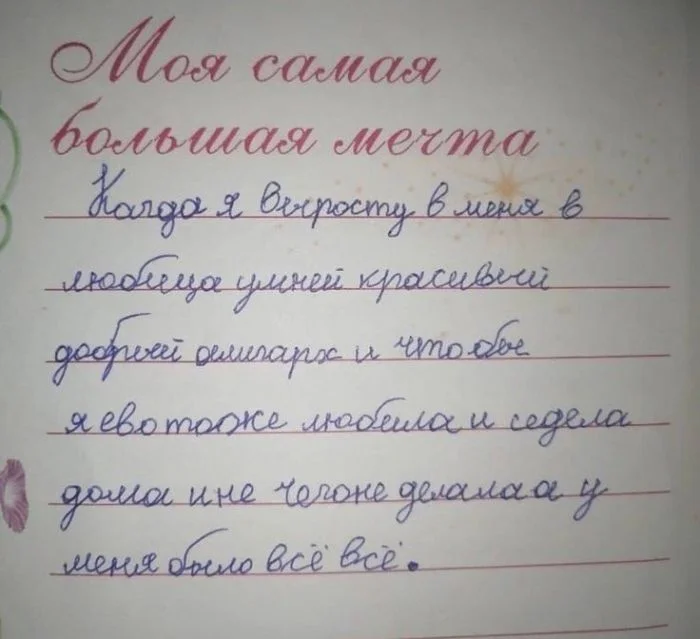 Моя самая
большая мечта
Калда я выросту в меня в
любица умней красивый
добрый олигарх и что обы
я ево тоже любила и седела
дома и не чегоне делала а у
меня было всё всё.